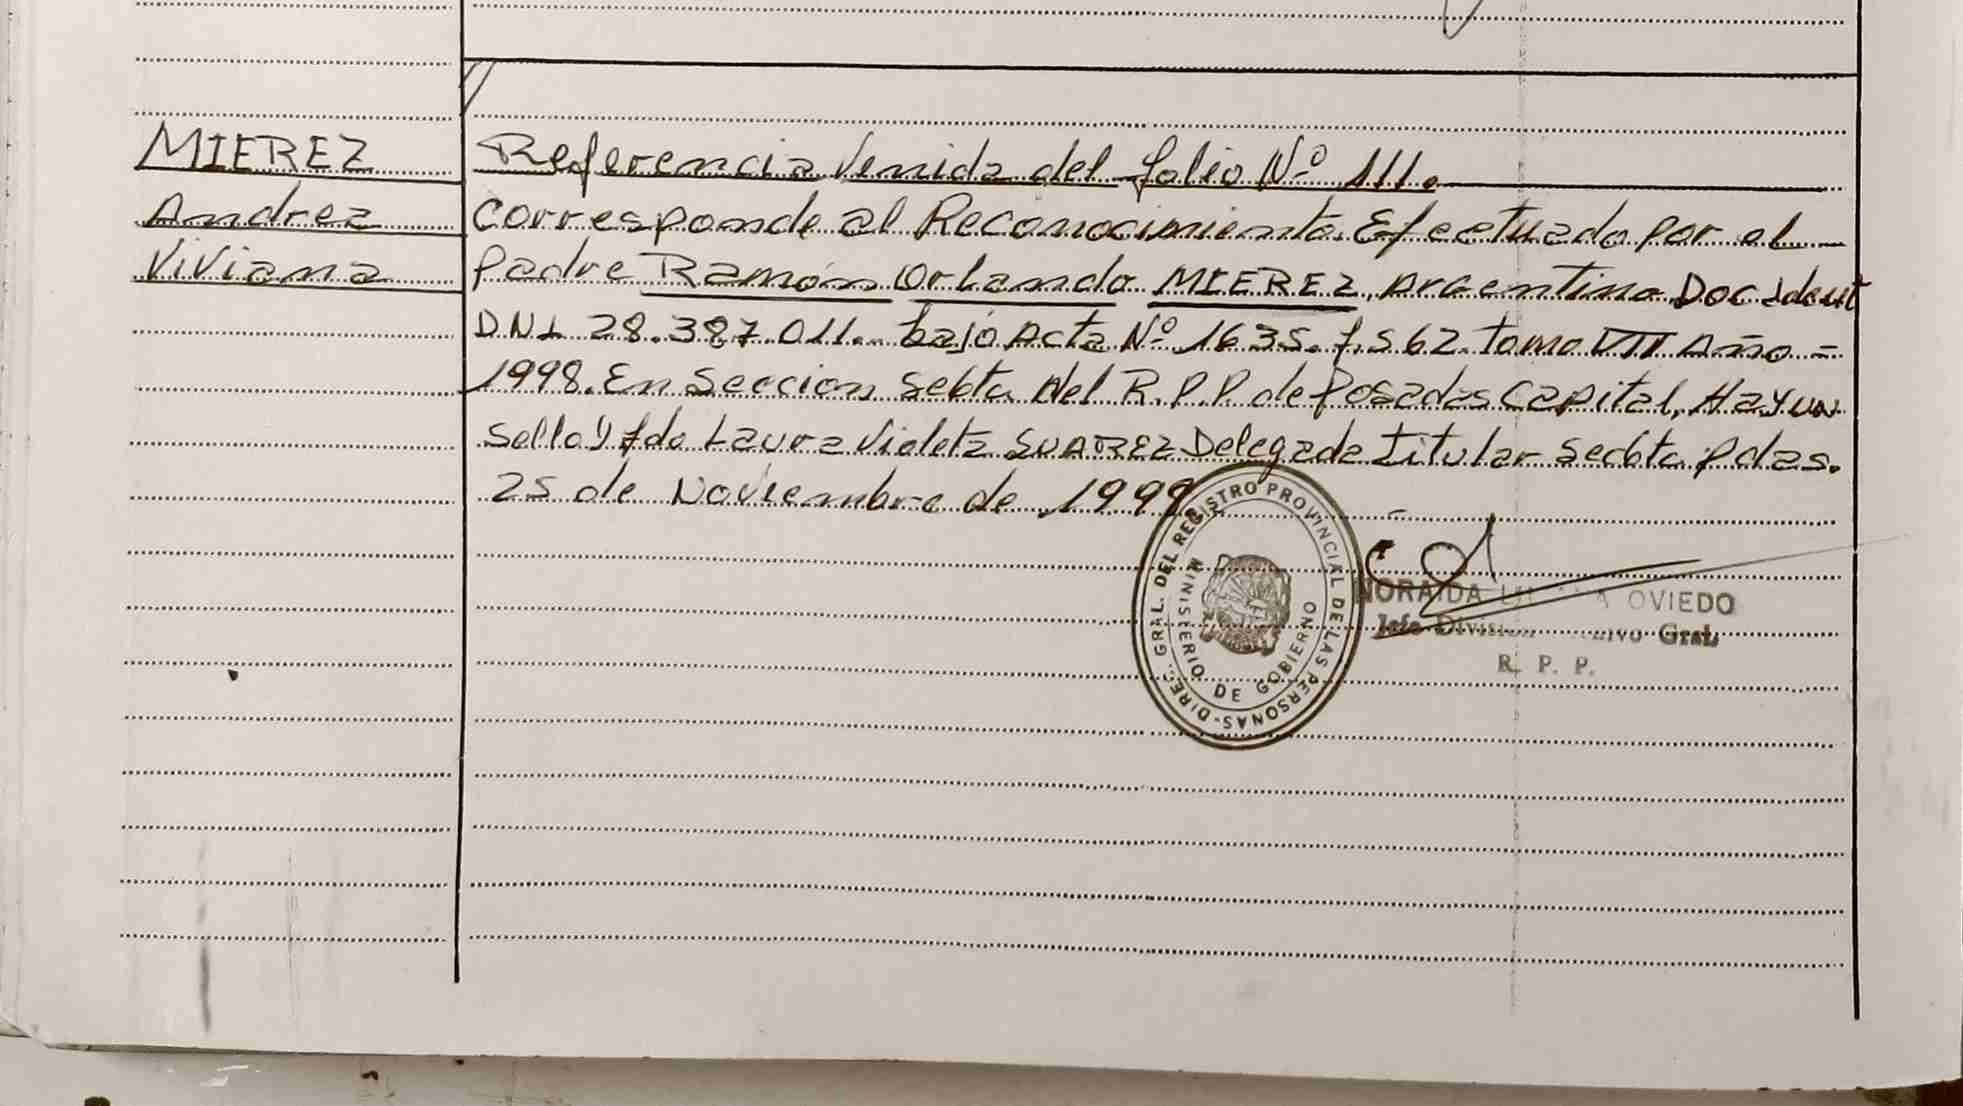 MIEREZ
Andrez
Viviana
Referencia Venida del folio Nº 111.
Corresponde al Reconocimiento Efectuado por el
Padre Ramón Orlando MIEREZ, Argentino Doc Ident
DNI 28.387.011.. bajo Acta Nº 1635. f. 562. tomo VII Año =
1998. En Seccion Sebta del R.P.P. de Posadas Capital, Hay un
sello y fdo Laura Violeta SUAREZ Delegada titular Secbta Pdas.
25 de Noviembre de 1999
DIREC. GRAL. DEL REGISTRO PROVINCIAL DE LAS PERSONAS
MINISTERIO DE GOBIERNO
NORAIDA OVIEDO
Jefe Division Gral.
R. P. P.